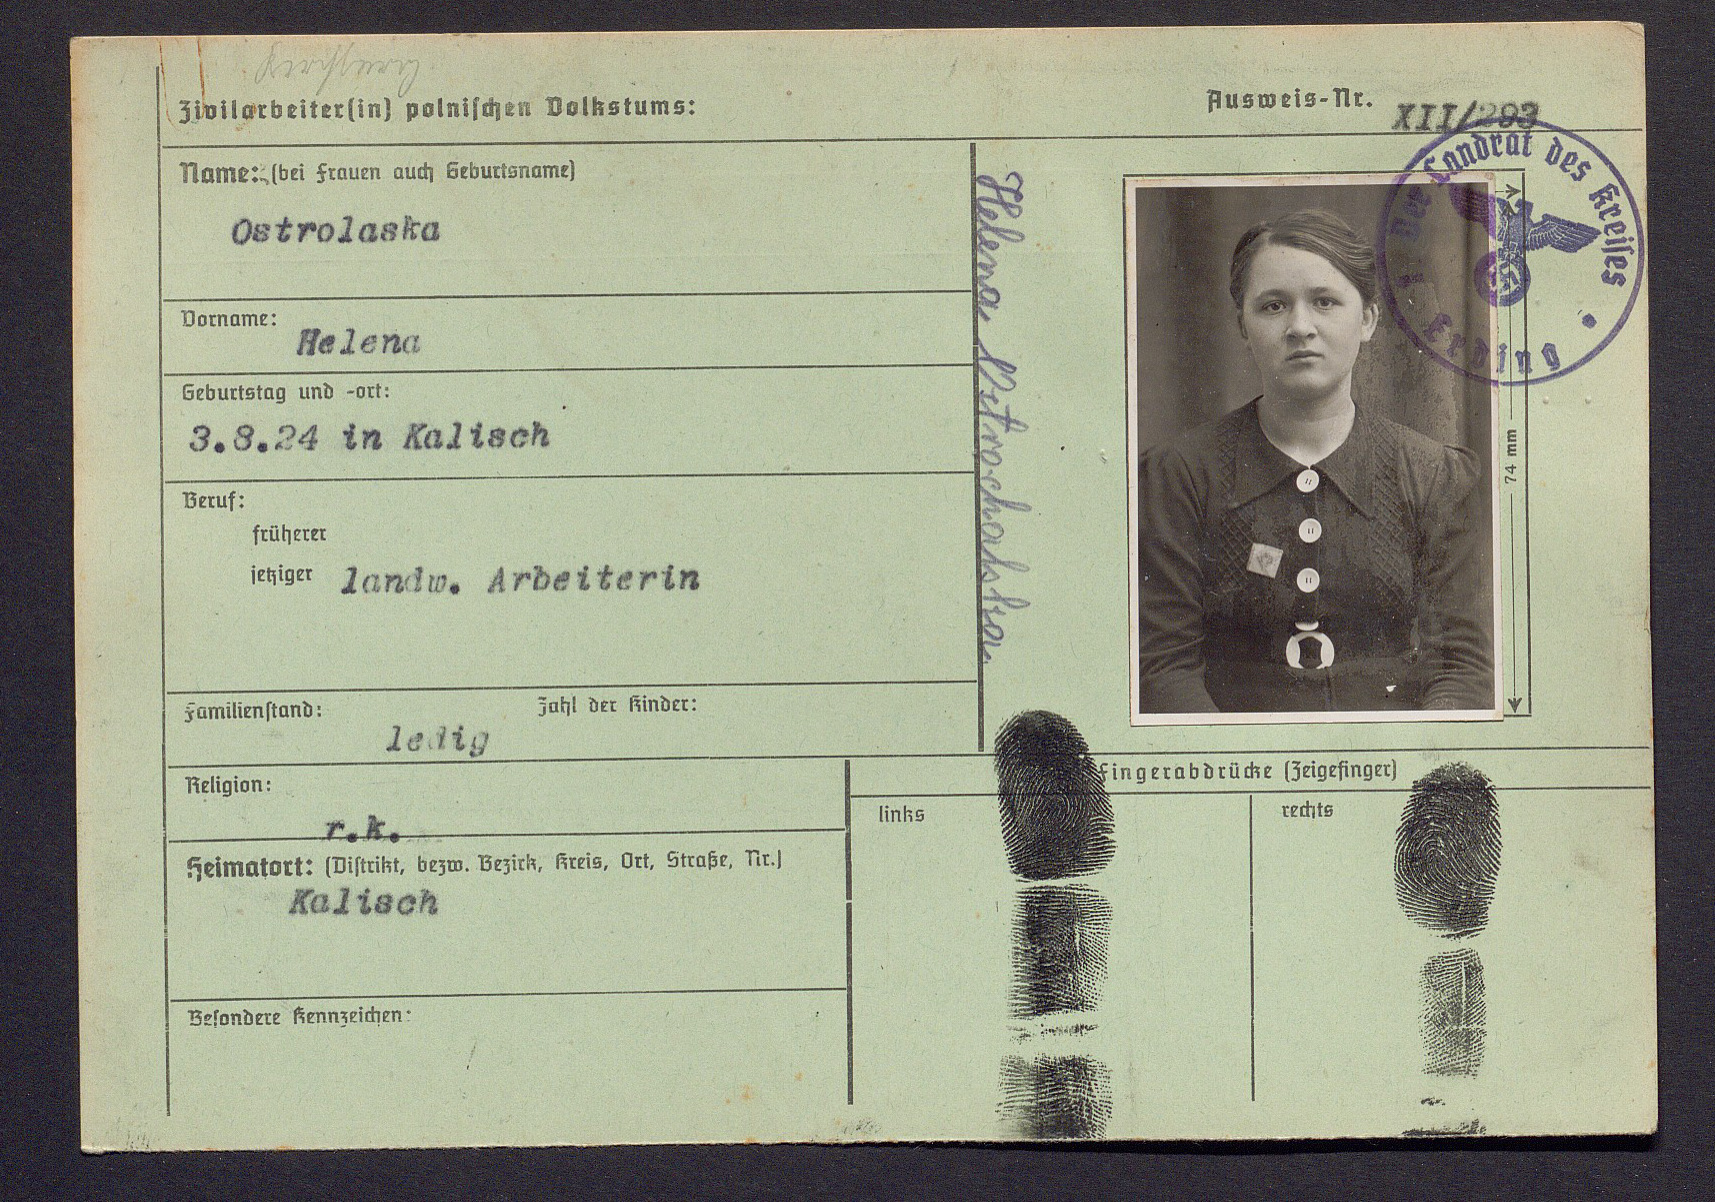 Zivilarbeiter(in) polnischen Volkstums:
Ausweis-Nr. XII/293
Name: (bei Frauen auch Geburtsname)
Ostrolaska
Vorname:
Helena
Geburtstag und -ort:
3.8.24 in Kalisch
Beruf:
früherer
jetziger landw. Arbeiterin
Familienstand: Zahl der Kinder:
ledig
Religion:
r.k.
Heimatort: (Distrikt, bezw. Bezirk, Kreis, Ort, Straße, Nr.)
Kalisch
Besondere Kennzeichen:
Helena
Der Landrat des Kreises
Erding
74 mm
Fingerabdrücke (Zeigefinger)
links rechts